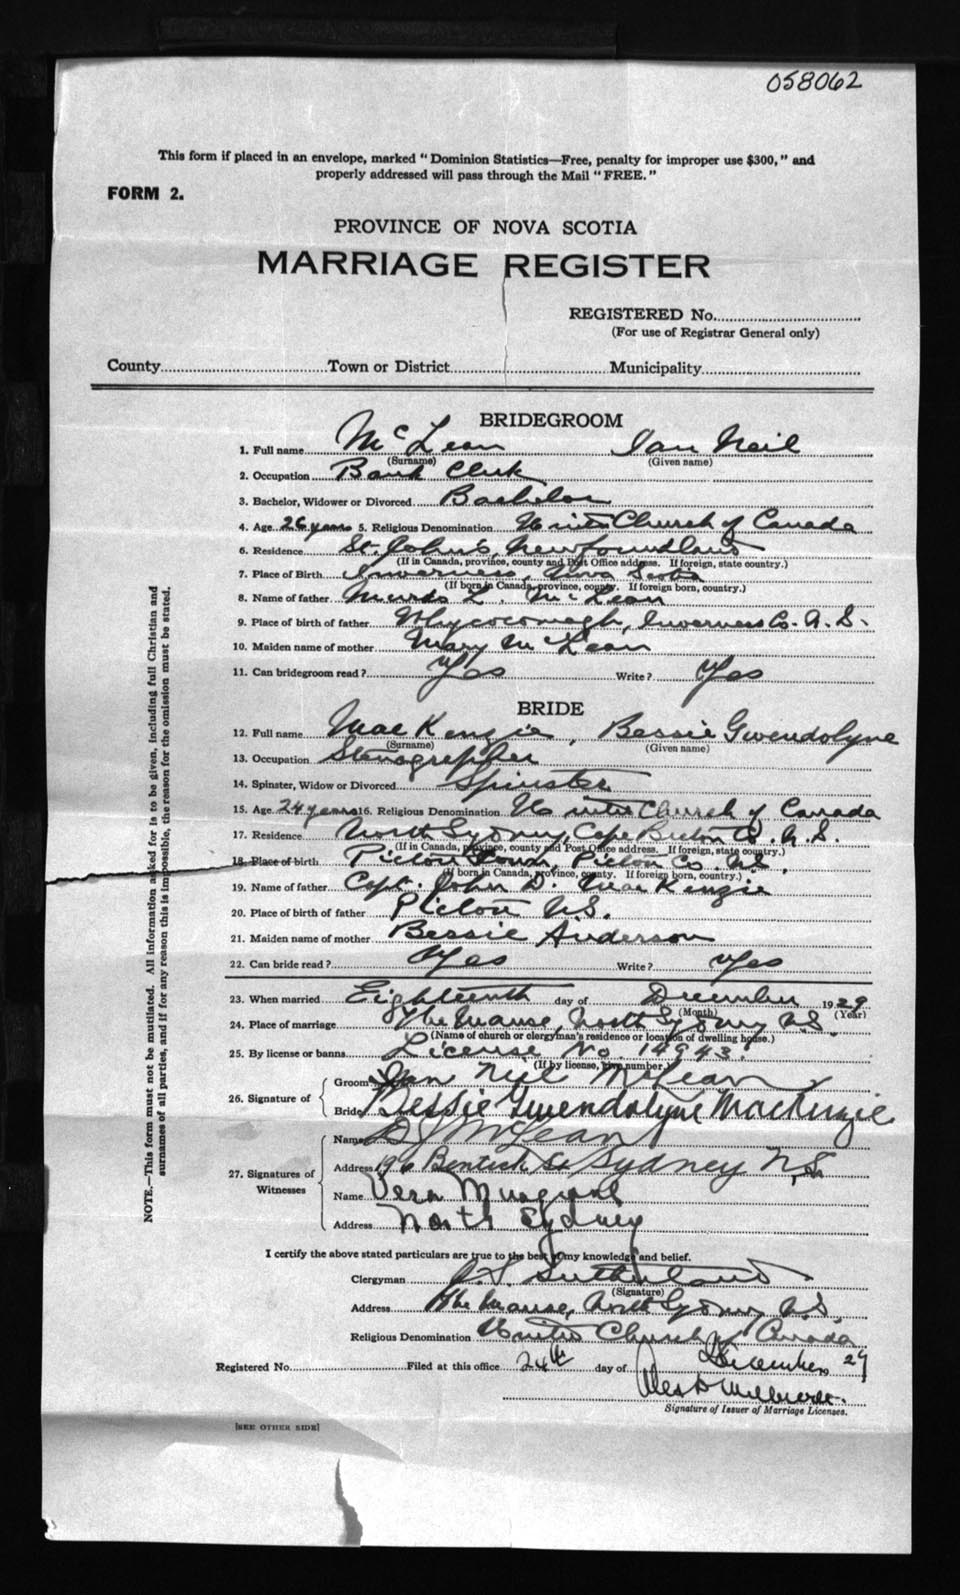 058062
This form if placed in an envelope, marked "Dominion Statistics—Free, penalty for improper use $300," and
properly addressed will pass through the Mail "FREE."
FORM 2.
PROVINCE OF NOVA SCOTIA
MARRIAGE REGISTER
REGISTERED No.
(For use of Registrar General only)
County Town or District Municipality
BRIDEGROOM
1. Full name McLean Ian Neil
(Surname) (Given name)
2. Occupation Bank Clerk
3. Bachelor, Widower or Divorced Bachelor
4. Age 26 years 5. Religious Denomination United Church of Canada
6. Residence St. John's, Newfoundland
(If in Canada, province, county and Post Office address. If foreign, state country.)
7. Place of Birth Inverness, Nova Scotia
(If born in Canada, province, county. If foreign born, country.)
8. Name of father L. McLean
9. Place of birth of father Whycocomagh, Inverness Co. N.S.
10. Maiden name of mother Mary McLean
11. Can bridegroom read? Yes Write? Yes
BRIDE
12. Full name MacKenzie, Bessie Gwendolyne
(Surname) (Given name)
13. Occupation Stenographer
14. Spinster, Widow or Divorced Spinster
15. Age 24 years 16. Religious Denomination United Church of Canada
17. Residence North Sydney, Cape Breton Co. N.S.
(If in Canada, province, county and Post Office address. If foreign, state country.)
18. Place of birth Pictou Town, Pictou Co. N.S.
(If born in Canada, province, county. If foreign born, country.)
19. Name of father Capt. John D. MacKenzie
20. Place of birth of father Pictou N.S.
21. Maiden name of mother Bessie Anderson
22. Can bride read? Yes Write? Yes
23. When married Eighteenth day of December 1929
(Month) (Year)
24. Place of marriage The Manse, North Sydney N.S.
(Name of church or clergyman's residence or location of dwelling house.)
25. By license or banns License No. 14943.
(If by license, give number.)
26. Signature of
Groom Ian Neil McLean
Bride Bessie Gwendolyne MacKenzie
27. Signatures of Witnesses
Name D J McLean
Address 196 Bentick St Sydney N.S.
Name Vera Musgrave
Address North Sydney
I certify the above stated particulars are true to the best of my knowledge and belief.
Clergyman Sutherland
(Signature)
Address The Manse, North Sydney N.S.
Religious Denomination United Church of Canada
Registered No. Filed at this office 24th day of December 29
Signature of Issuer of Marriage Licenses.
[SEE OTHER SIDE]
NOTE.—This form must not be mutilated. All information asked for is to be given, including full Christian and
surnames of all parties, and if for any reason this is impossible, the reason for the omission must be stated.